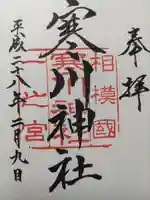 奉拝
相模國
一之宮
寒川神社
平成二十八年二月九日